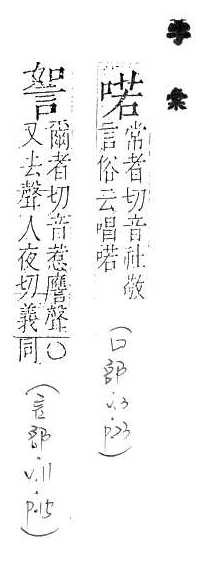 字彙
喏
常者切音社敬
言俗云唱喏
(口部·v.3·p.23)
爾者切音惹譍聲○
又去聲人夜切義同
(言部·v.11·p.15)